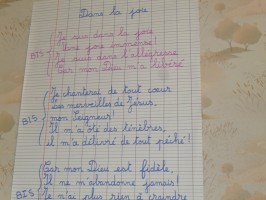 Dans la joie
Je suis dans la joie
Une joie immense!
BIS Je suis dans l'allégresse
Car mon Dieu m'a libéré
Je chanterai de tout cœur
les merveilles de Jésus,
BIS mon Seigneur!
Il m'a ôté des ténèbres,
il m'a délivré de tout péché!
Car mon Dieu est fidèle,
Il ne m'abandonne jamais!
BIS Je n'ai plus rien à craindre